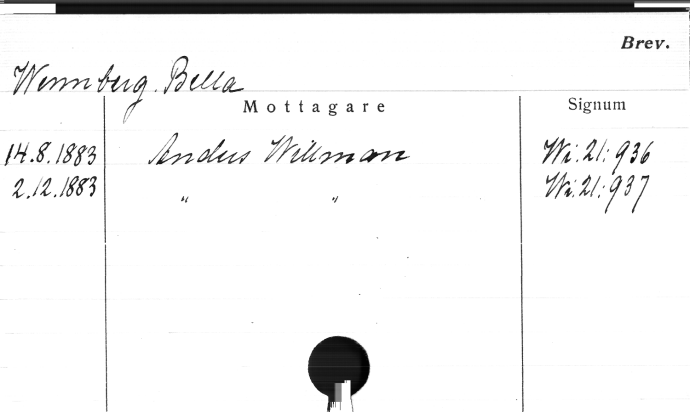 Brev.
Wennberg. Bella
Mottagare
Signum
14.8.1883 Anders Willman Wi.21:936
2.12.1883 " " Wi.21:937